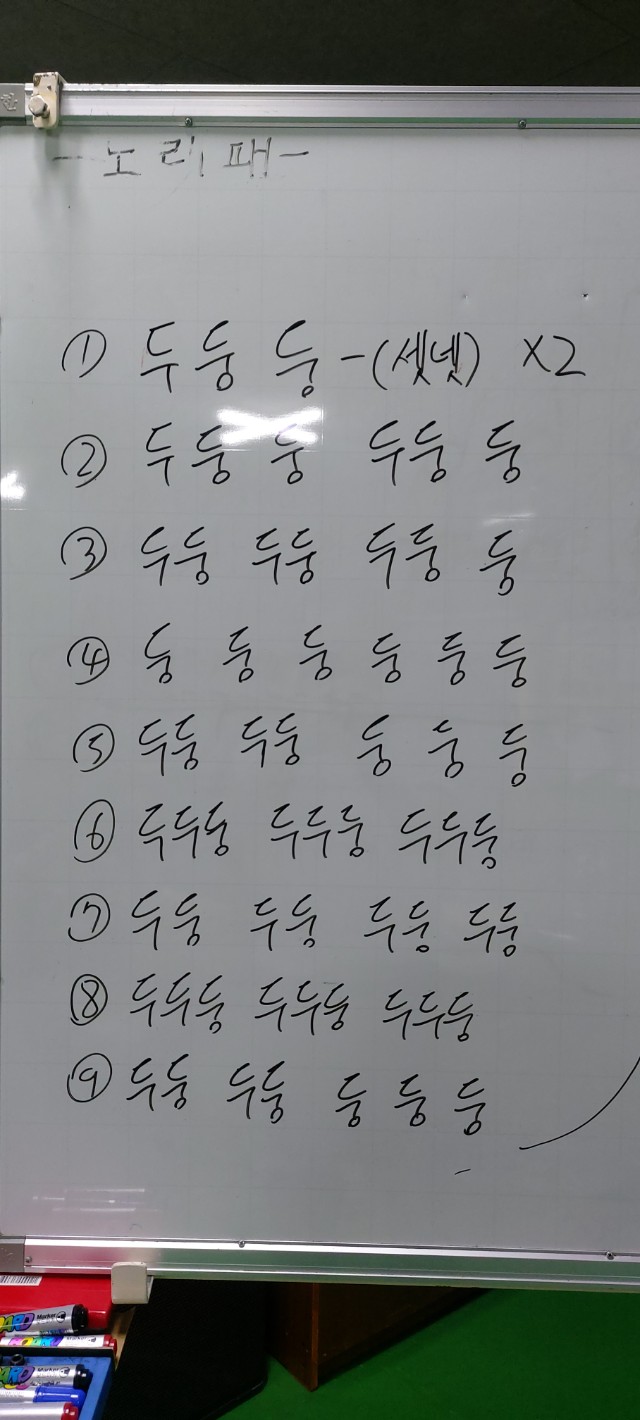 - 노리패 -
① 두둥 둥 - (셋넷) X2
② 두둥 둥 두둥 둥
③ 두둥 두둥 두둥 둥
④ 둥 둥 둥 둥 둥 둥
⑤ 두둥 두둥 둥 둥 둥
⑥ 두두둥 두두둥 두두둥
⑦ 두둥 두둥 두둥 두둥
⑧ 두두둥 두두둥 두두둥
⑨ 두둥 두둥 둥 둥 둥
Marker